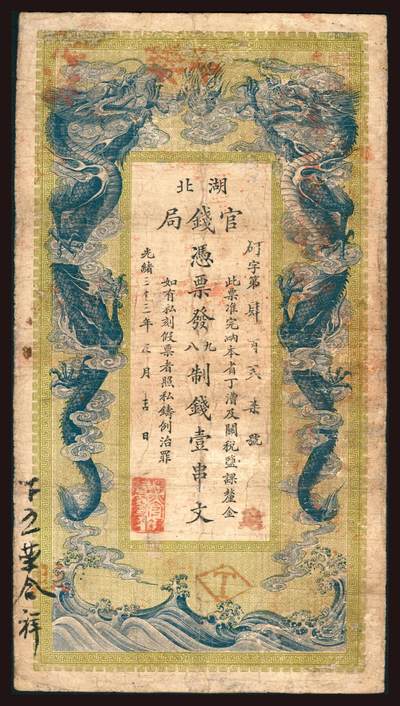 湖北
官錢局
字第肆百貳柒號
此票准完納本省丁漕及關稅鹽課釐金
憑票發九八制錢壹串文
如有私刻假票者照私鑄例治罪
光緒二十二年 月吉日
華合祥